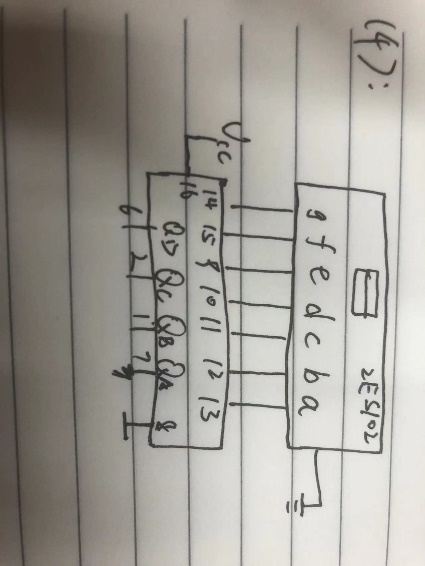 (4):
2ES102
g f e d c b a
14 15 9 10 11 12 13
Vcc
16
QD QC QB QA 8
6 2 1 7